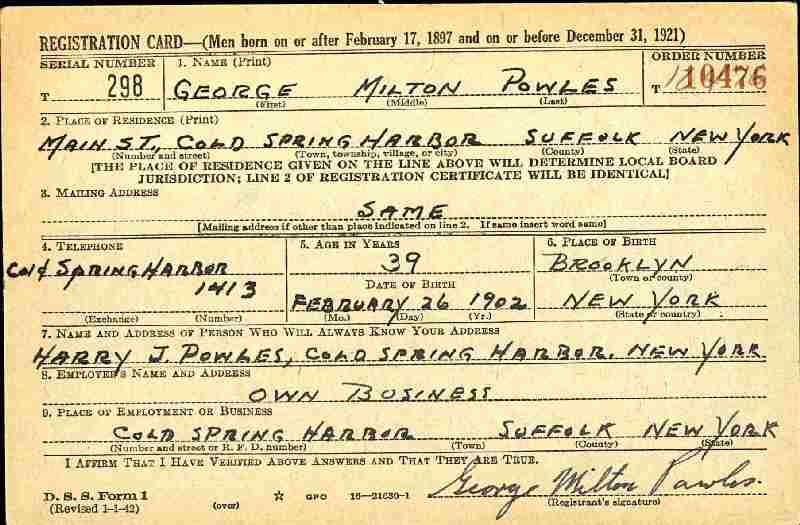 REGISTRATION CARD—(Men born on or after February 17, 1897 and on or before December 31, 1921)
SERIAL NUMBER
1. NAME (Print)
ORDER NUMBER
T 298
GEORGE MILTON POWLES
T 10476
(First) (Middle) (Last)
2. PLACE OF RESIDENCE (Print)
MAIN ST., COLD SPRING HARBOR SUFFOLK NEW YORK
(Number and street) (Town, township, village, or city) (County) (State)
[THE PLACE OF RESIDENCE GIVEN ON THE LINE ABOVE WILL DETERMINE LOCAL BOARD
JURISDICTION; LINE 2 OF REGISTRATION CERTIFICATE WILL BE IDENTICAL]
3. MAILING ADDRESS
SAME
[Mailing address if other than place indicated on line 2. If same insert word same]
4. TELEPHONE
5. AGE IN YEARS
6. PLACE OF BIRTH
COLD SPRING HARBOR
39
BROOKLYN
(Town or county)
1413
DATE OF BIRTH
FEBRUARY 26 1902
NEW YORK
(Exchange) (Number)
(Mo.) (Day) (Yr.)
(State or country)
7. NAME AND ADDRESS OF PERSON WHO WILL ALWAYS KNOW YOUR ADDRESS
HARRY J. POWLES, COLD SPRING HARBOR, NEW YORK
8. EMPLOYER'S NAME AND ADDRESS
OWN BUSINESS
9. PLACE OF EMPLOYMENT OR BUSINESS
COLD SPRING HARBOR SUFFOLK NEW YORK
(Number and street or R. F. D. number) (Town) (County) (State)
I AFFIRM THAT I HAVE VERIFIED ABOVE ANSWERS AND THAT THEY ARE TRUE.
George Milton Powles.
D. S. S. Form 1
(Revised 1-1-42) (over) GPO 16—21630-1 (Registrant's signature)